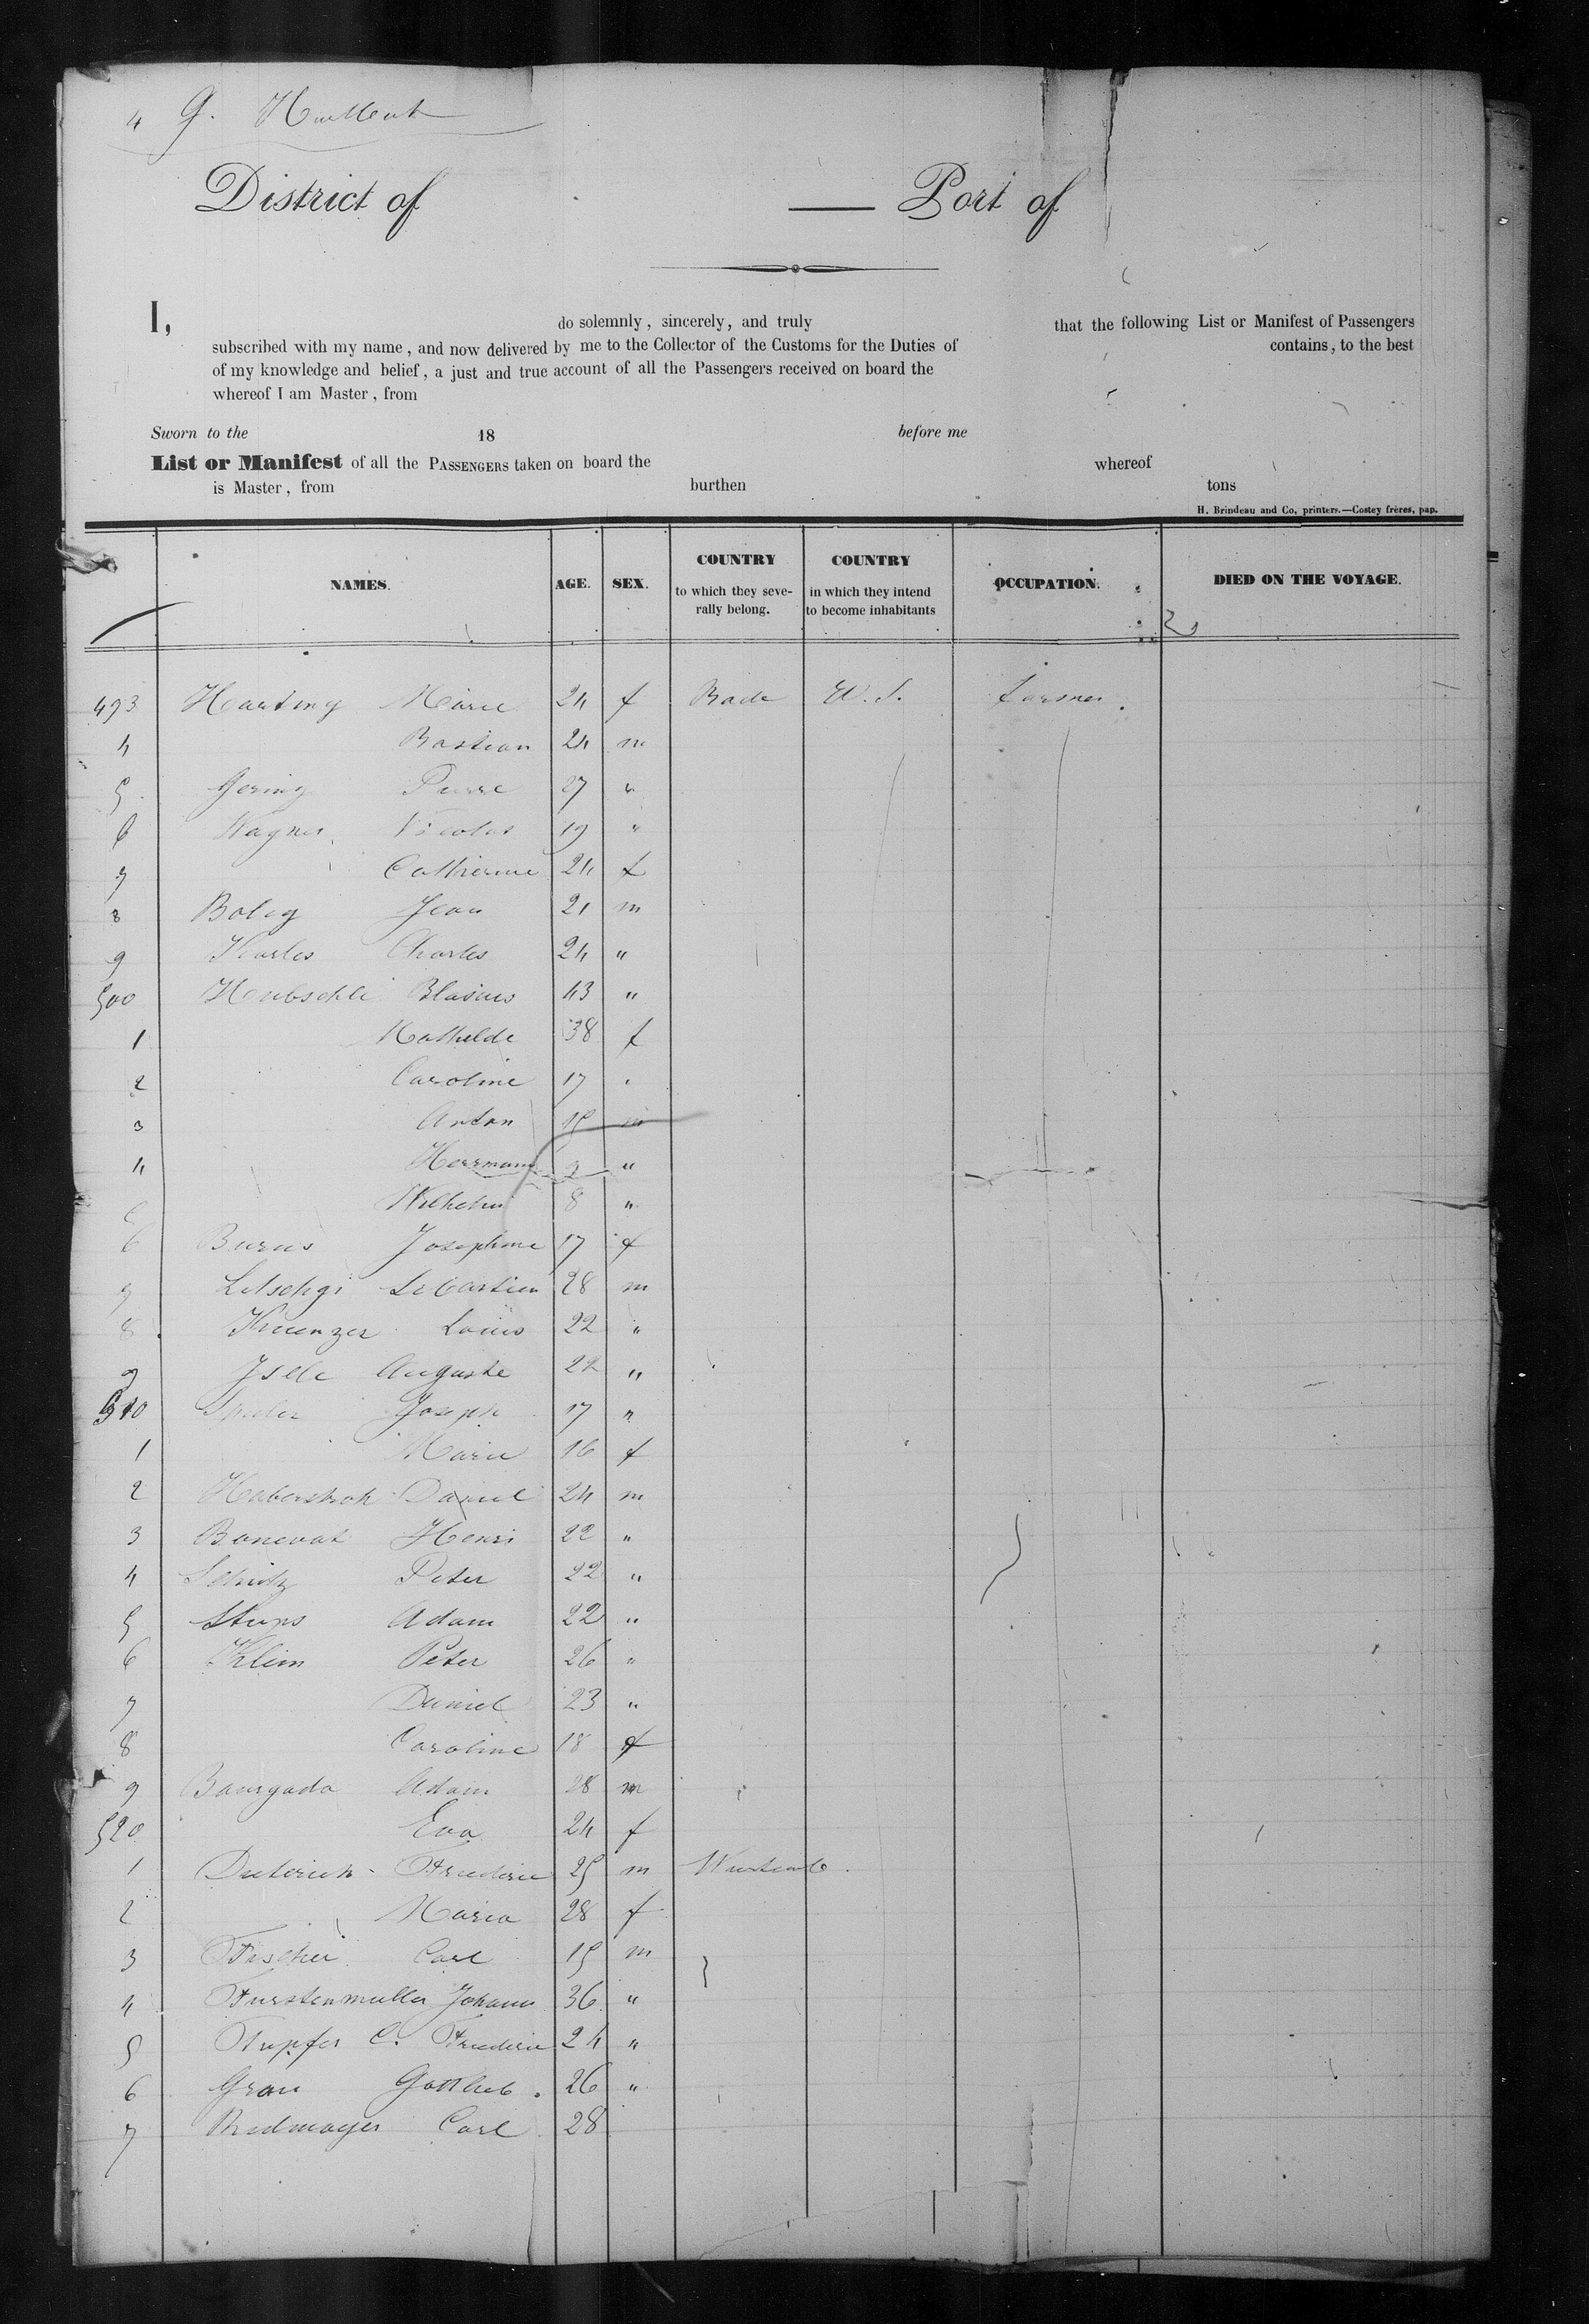 4 G. Hurlbut
District of — Port of
I, do solemnly, sincerely, and truly that the following List or Manifest of Passengers
subscribed with my name, and now delivered by me to the Collector of the Customs for the Duties of contains, to the best
of my knowledge and belief, a just and true account of all the Passengers received on board the
whereof I am Master, from
Sworn to the 18 before me
List or Manifest of all the PASSENGERS taken on board the whereof
is Master, from burthen tons
H. Brindeau and Co, printers.—Costey frères, pap.
NAMES. AGE. SEX. COUNTRY to which they severally belong. COUNTRY in which they intend to become inhabitants OCCUPATION. DIED ON THE VOYAGE.
493 Hartmy Marie 24 f Bade U.S. farmer.
4 Bastian 24 m
5 Gering Pierre 27 "
6 Wagner Nicolas 19 "
7 Catherine 24 f
8 Boleg Jean 21 m
9 Karles Charles 24 "
500 Hubschle Blasius 43 "
1 Mathilde 38 f
2 Caroline 17 "
3 Anton 15 m
4 Herrmann 9 "
Wilhelm 8 "
6 Burus Josephine 17 f
7 Letschgi Sebastien 28 m
8 Kuenzer Louis 22 "
9 Isele Auguste 22 "
510 Joseph 17 "
1 Marie 16 f
2 Haberstroh Daniel 24 m
3 Bonevat Henri 22 "
4 Schutz Peter 22 "
5 Stups Adam 22 "
6 Klein Peter 26 "
7 Daniel 23 "
8 Caroline 18 f
9 Adam 28 m
520 Eva 24 f
1 Dieterich Frederic 25 m Wurtemb.
2 Maria 28 f
3 Fischer Carl 15 m
4 Furstenmuller Johann 36 "
5 Tupfer C. Frederic 24 "
6 Grau Gottlieb. 26 "
7 Carl 28